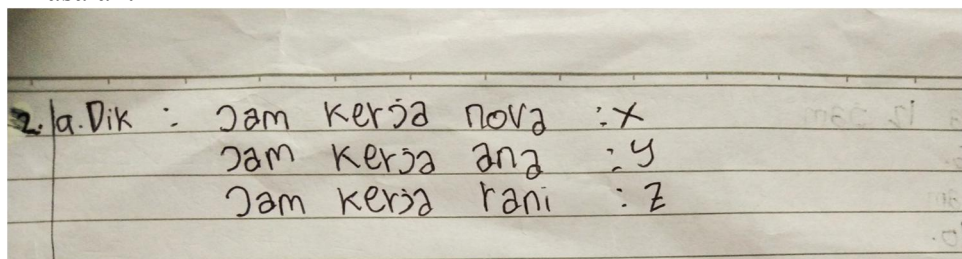 2. a. Dik : Jam kerja nova : x
Jam kerja ana : y
Jam kerja rani : z